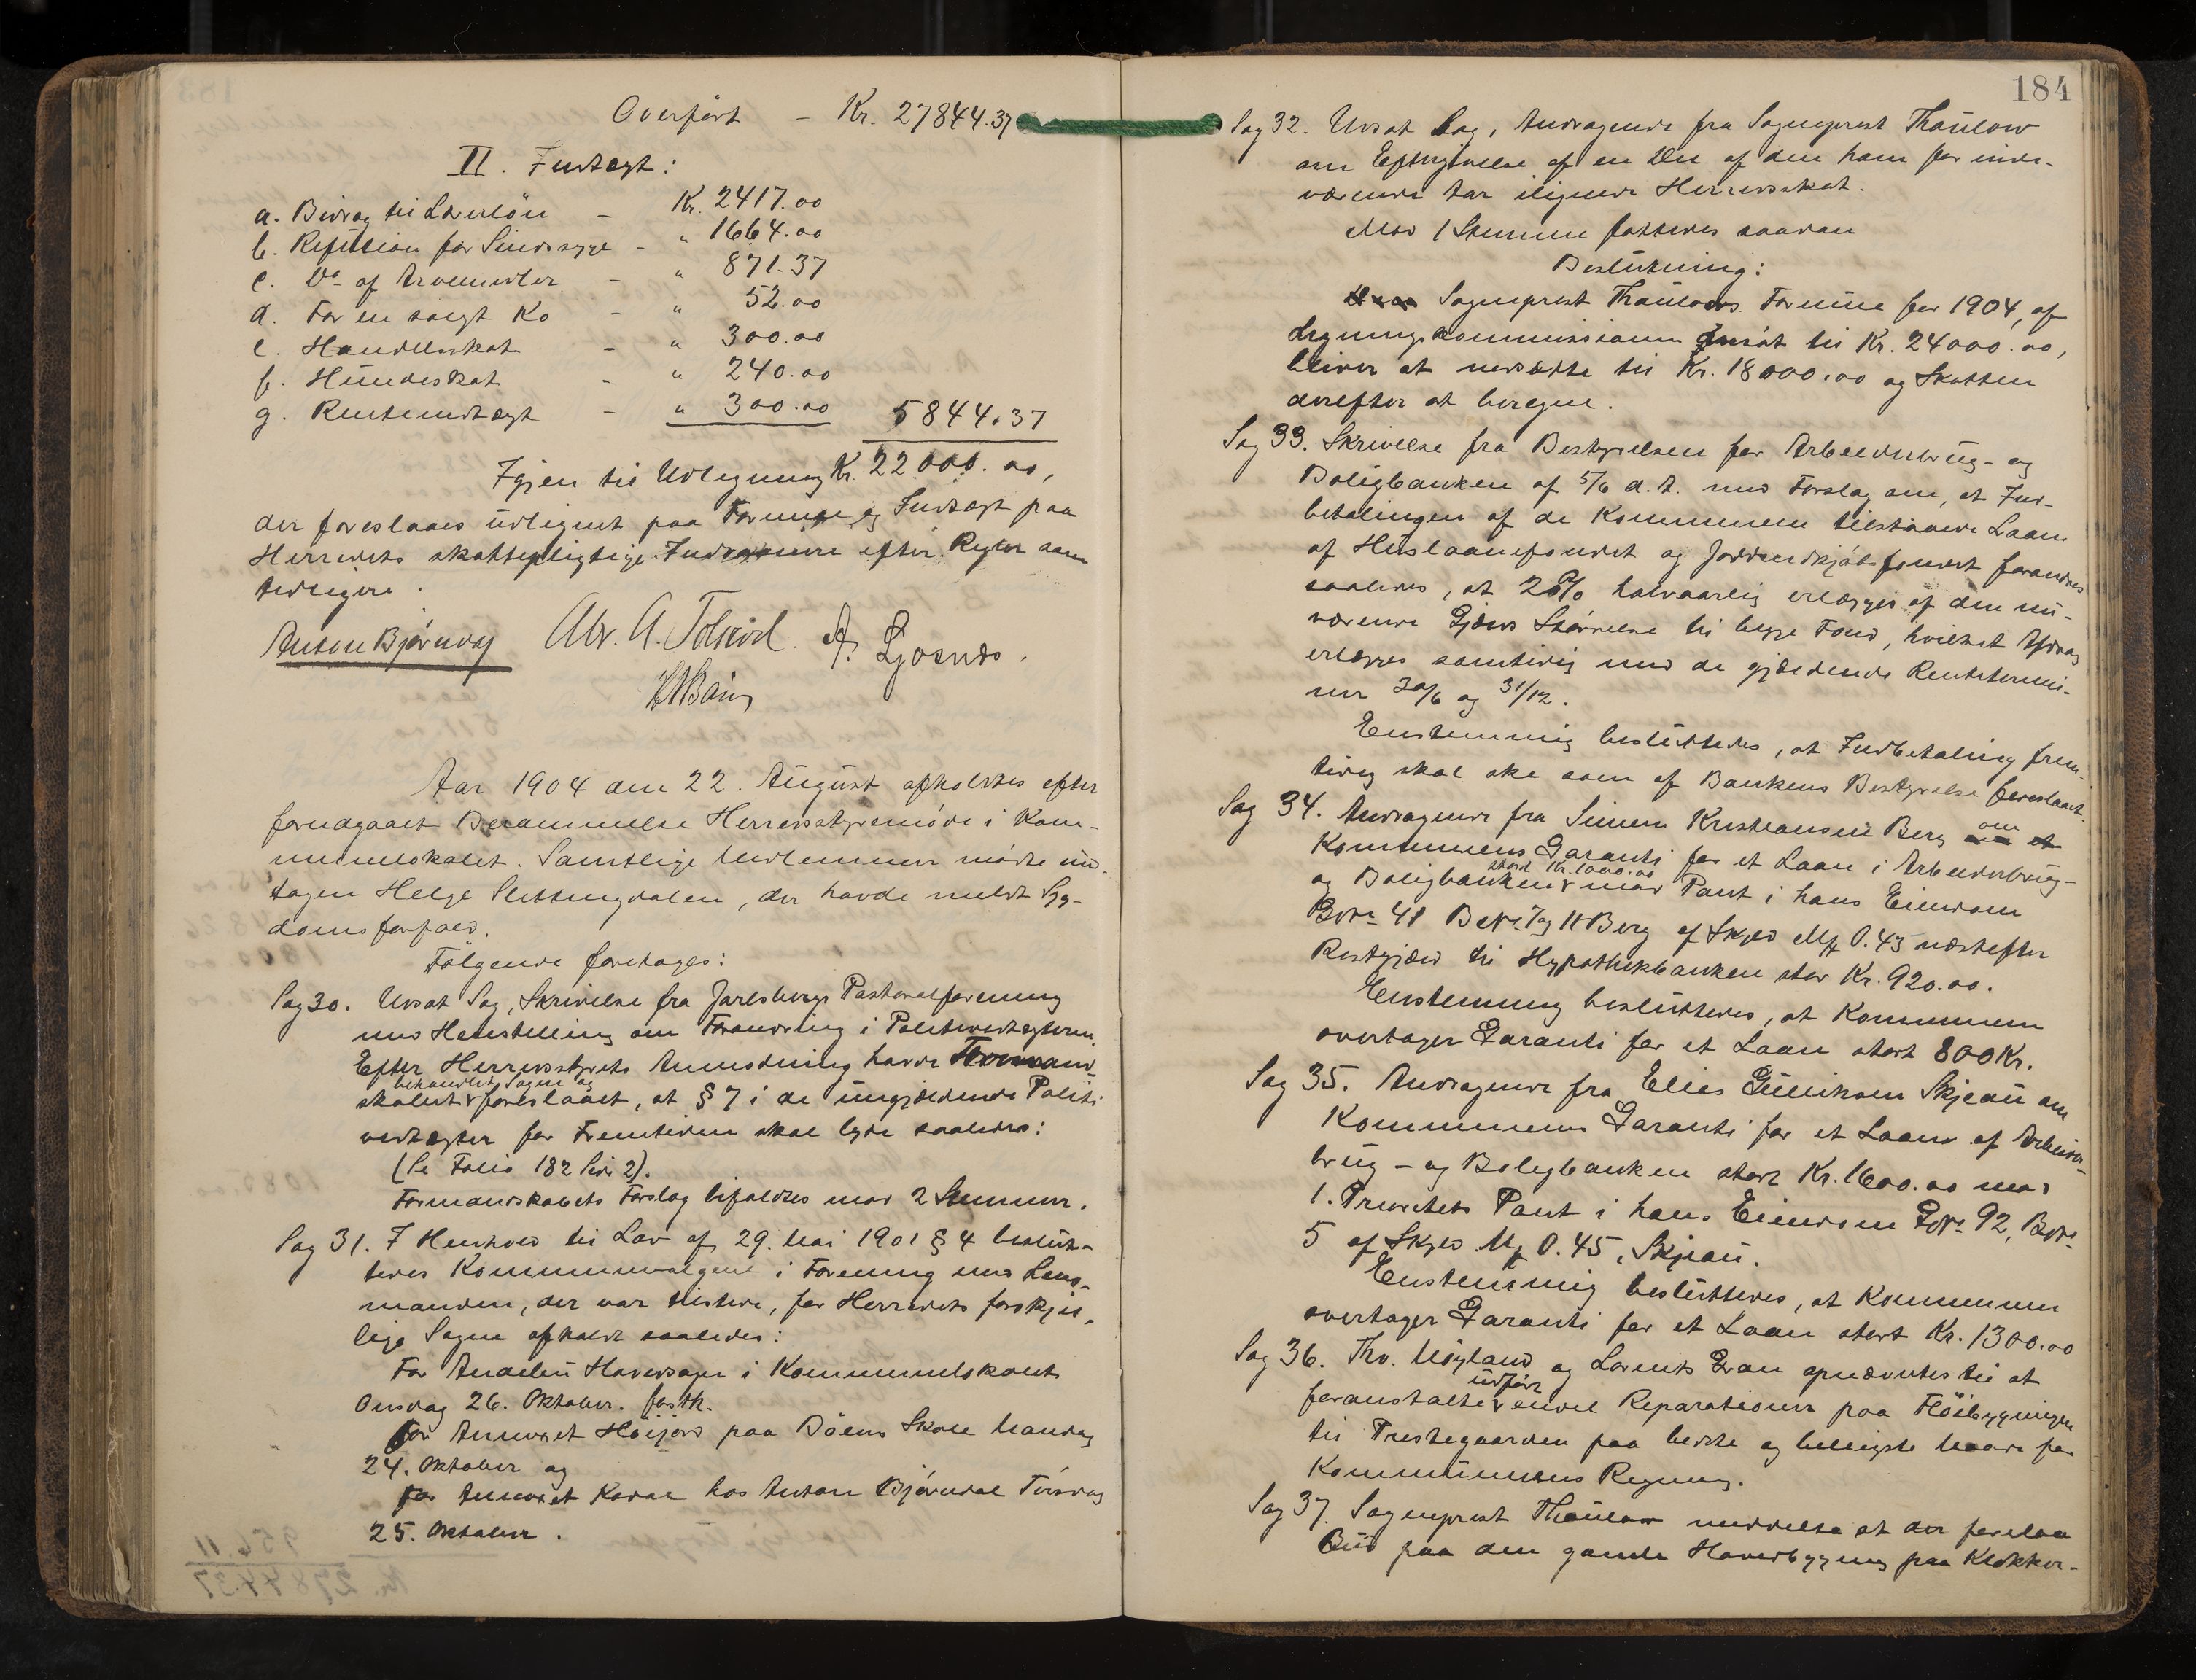 Overført - Kr. 27844.37
II. Indtægt:
a. Bidrag til Lærerlön - Kr. 2417.00
b. Refusion for Sindssyge - " 1664.00
c. Do. af Arvemidler - " 871.37
d. For en solgt Ko - " 52.00
e. Handelsskat - " 300.00
f. Hundeskat - " 240.00
g. Renteindtægt - " 300.00 5844.37
Igjen til Udligning Kr. 22.000.00,
der foreslaaes udlignet paa Formue og Indtægt paa
Herredets skattepligtige Indvaanere efter Regler som
tidligere.
Anton Bjørndal Abr. A. Tolsrød. A. Ljosnes.
Aar 1904 den 22. August afholdtes efter
forudgaaet Berammelse Herredsstyremøde i Kom-
munelokalet. Samtlige Medlemmer mødte und-
tagen Helge Slettingdalen, der havde meldt Syg-
domsforfald.
Følgende foretoges:
Sag 30. Udsat Sag, Skrivelse fra Jarlsbergs Pastoralforening
med Henstilling om Forandring i Politivedtægterne.
Efter Herredsstyrets Anmodning havde Formand-
skabet behandlet Sagen og foreslaaet, at § 7 i de nugjældende Politi
vedtægter for Fremtiden skal lyde saaledes:
(Se Folio 182 Side 2).
Formandskabets Forslag bifaldtes mod 2 Stemmer.
Sag 31. I Henhold til Lov af 29. Mai 1901 § 4 beslut-
tedes Kommunevalgene i Forening med Lens-
manden, der var tilstede, for Herredets forskjel-
lige Sogne afholdt saaledes:
For Andebu Hovedsogn i Kommunelokalet
Onsdag 26. Oktober.
for Annexet Höijord paa Döens Skole Mandag
24. Oktober og
for Annexet Kodal hos Anton Bjørndal Tirsdag
25. Oktober.
184
Sag 32. Udsat Sag, Andragende fra Sogneprest Thaulow
om Eftergivelse af en Del af den ham for inde-
værende Aar ilignede Herredsskat.
Mod 1 Stemme fattedes saadan
Beslutning:
Sogneprest Thaulows Formue for 1904, af
Ligningskommissionen ansat til Kr. 24000.00,
bliver at nedsætte til Kr. 18000.00 og Skatten
derefter at beregne.
Sag 33. Skrivelse fra Bestyrelsen for Arbeiderbrug- og
Boligbanken af 5/6 d. A. med Forslag om, at Ind-
betalingen af de Kommunen tilstaaede Laan
af Huslaanefondet og Jordindkjøbsfondet forandres
saaledes, at 2% halvaarlig erlægges af den nu-
værende Gjælds Størrelse til begge Fond, hvilket Afdrag
erlægges samtidig med de gjældende Rentetermi-
ner 30/6 og 31/12.
Enstemmig besluttedes, at Indbetaling frem-
tidig skal ske som af Bankens Bestyrelse foreslaaet.
Sag 34. Andragende fra Simen Kristiansen Berg om
Kommunens Garanti for et Laan i Arbeiderbrug-
og Boligbanken stort Kr. 1000.00 mod Pant i hans Eiendom
Gno. 41 Bno. 7 og 11 Berg af Skyld Mk 0.43 næstefter
Restgjæld til Hypothekbanken stor Kr. 920.00.
Enstemmig besluttedes, at Kommunen
overtager Garanti for et Laan stort 800 Kr.
Sag 35. Andragende fra Elias Gulliksen Skjeau om
Kommunens Garanti for et Laan af Arbeider-
brug- og Boligbanken stort Kr. 1600.00 mod
1. Prioritets Pant i hans Eiendom Gno. 92, Bno.
5 af Skyld Mk 0.45, Skjeau.
Enstemmig besluttedes, at Kommunen
overtager Garanti for et Laan stort Kr. 1300.00
Sag 36. Thv. Møyland og Lorents Gran opnævntes til at
foranstalte udført endel Reparationer paa Fløibygningen
til Prestegaarden paa bedste og billigste Maade for
Kommunens Regning.
Sag 37. Sogneprest Thaulow meddelte at der forelaa
Bud paa den gamle Hovedbygning paa Klokker-